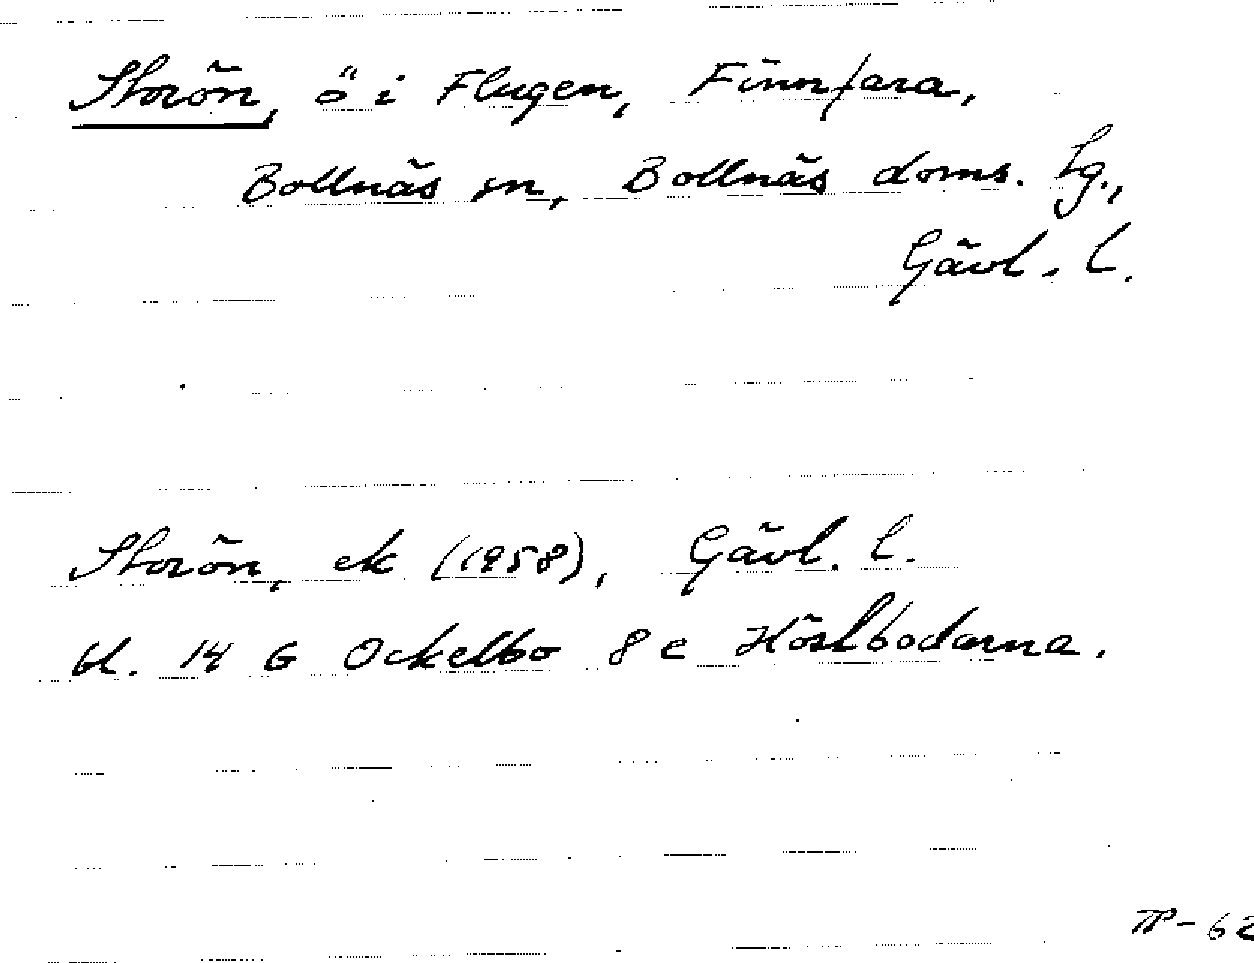 Storön, ö i Flugen, Finnfara,
Bollnäs sn, Bollnäs doms. lg.,
Gävl. l.
Storön, ek (1958), Gävl. l.
bl. 14 G Ockelbo 8 e Höstbodarna.
TP-62